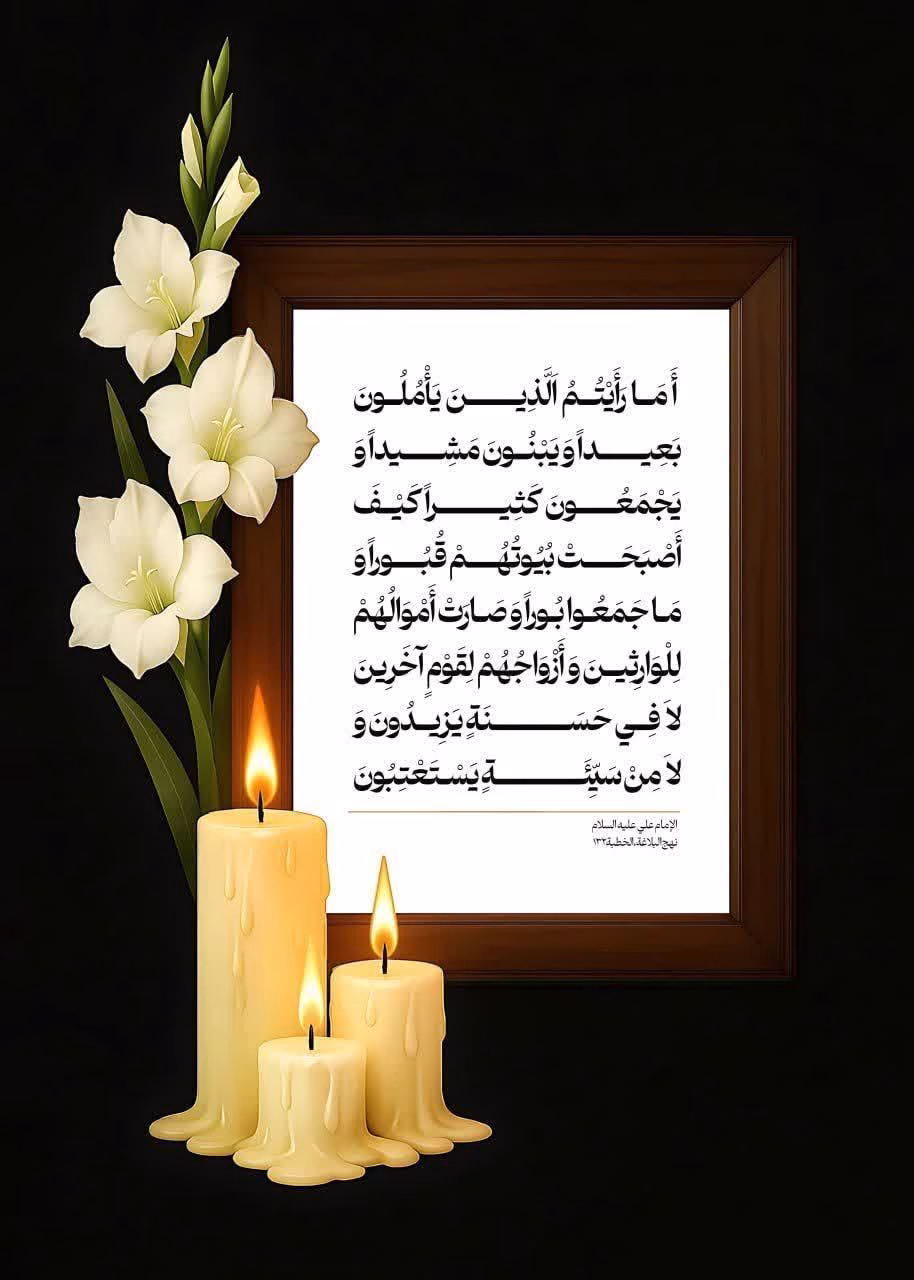 أَمَا رَأَيْتُمُ اَلَّذِينَ يَأْمُلُونَ
بَعِيداً وَ يَبْنُونَ مَشِيداً وَ
يَجْمَعُونَ كَثِيراً كَيْفَ
أَصْبَحَتْ بُيُوتُهُمْ قُبُوراً وَ
مَا جَمَعُوا بُوراً وَ صَارَتْ أَمْوَالُهُمْ
لِلْوَارِثِينَ وَ أَزْوَاجُهُمْ لِقَوْمٍ آخَرِينَ
لاَ فِي حَسَنَةٍ يَزِيدُونَ وَ
لاَ مِنْ سَيِّئَةٍ يَسْتَعْتِبُونَ
الإمام علي عليه السلام
نهج البلاغة، الخطبة ۱۳۲